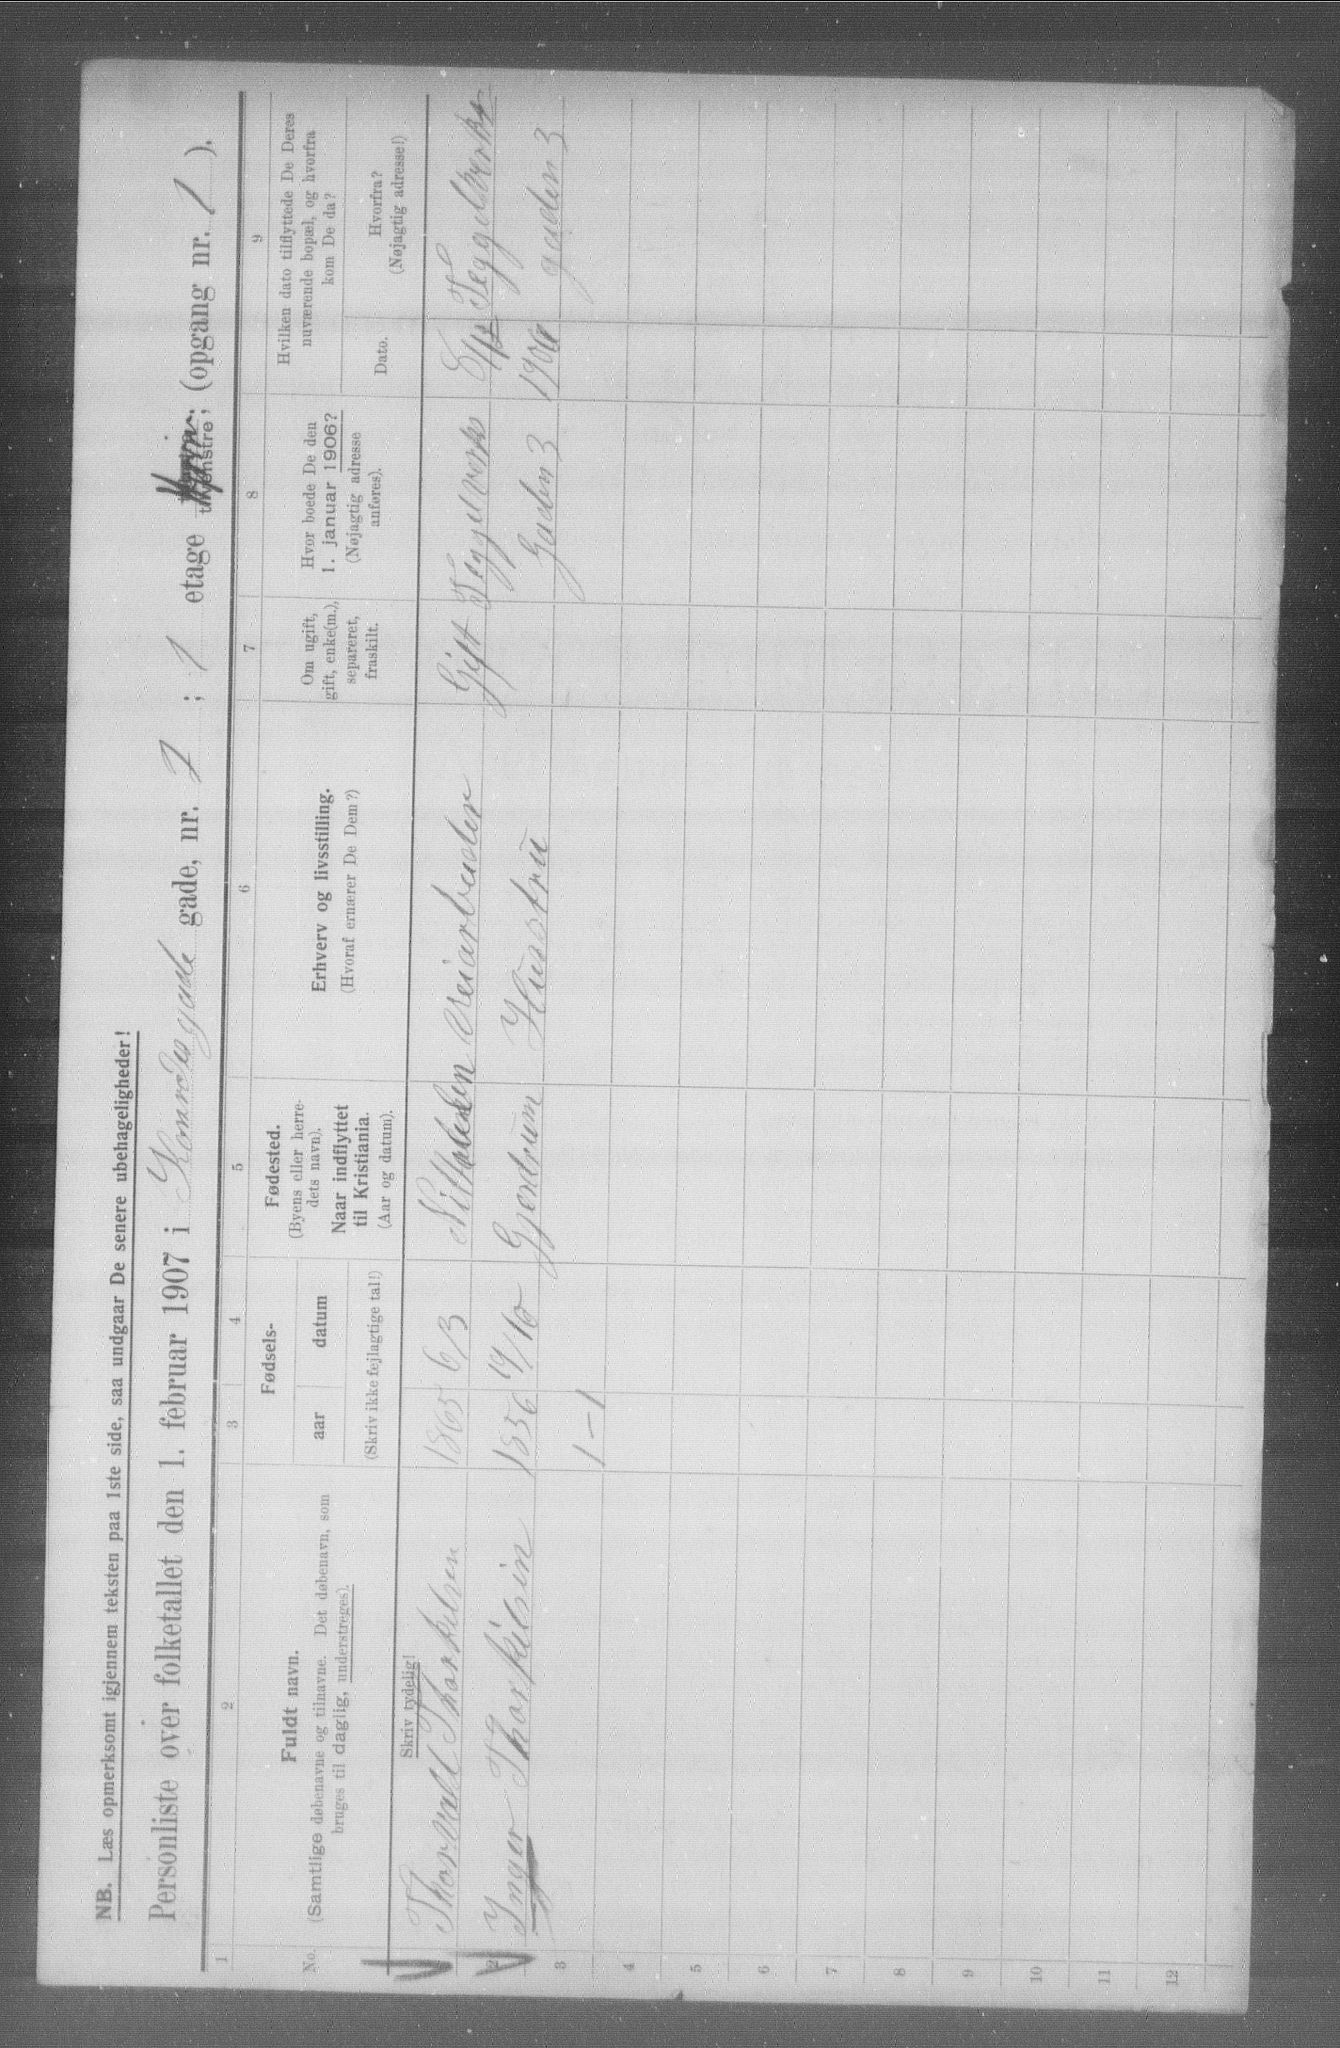 NB. Læs opmerksomt igjennem teksten paa 1ste side, saa undgaar De senere ubehageligheder!
Personliste over folketallet den 1. februar 1907 i Konradsgade gade, nr. 7 ; 1 etage tilvenstre; (opgang nr. 1 ).
1 2 3 4 5 6 7 8 9
No.
Fuldt navn.
(Samtlige døbenavne og tilnavne. Det døbenavn, som
bruges til daglig, understreges).
Fødsels-
aar datum
(Skriv ikke fejlagtige tal!)
Fødested.
(Byens eller herre-
dets navn).
Naar indflyttet
til Kristiania.
(Aar og datum).
Erhverv og livsstilling.
(Hvoraf ernærer De Dem?)
Om ugift,
gift, enke(m.),
separeret,
fraskilt.
Hvor boede De den
1. januar 1906?
(Nøjagtig adresse
anføres).
Hvilken dato tilflyttede De Deres
nuværende bopæl, og hvorfra
kom De da?
Dato.
Hvorfra?
(Nøjagtig adresse!)
Skriv tydelig!
Thorvall Thorkelsen 1865 6/3 Nittedalen Veiarbeider Gift Teggelverks Teggelverks
2 Inger Thorkelsin 1856 19/10 Gjerdrum Husstru Gaden 3 1906 gaden 3
3 1-1
4
5
6
7
8
9
10
11
12